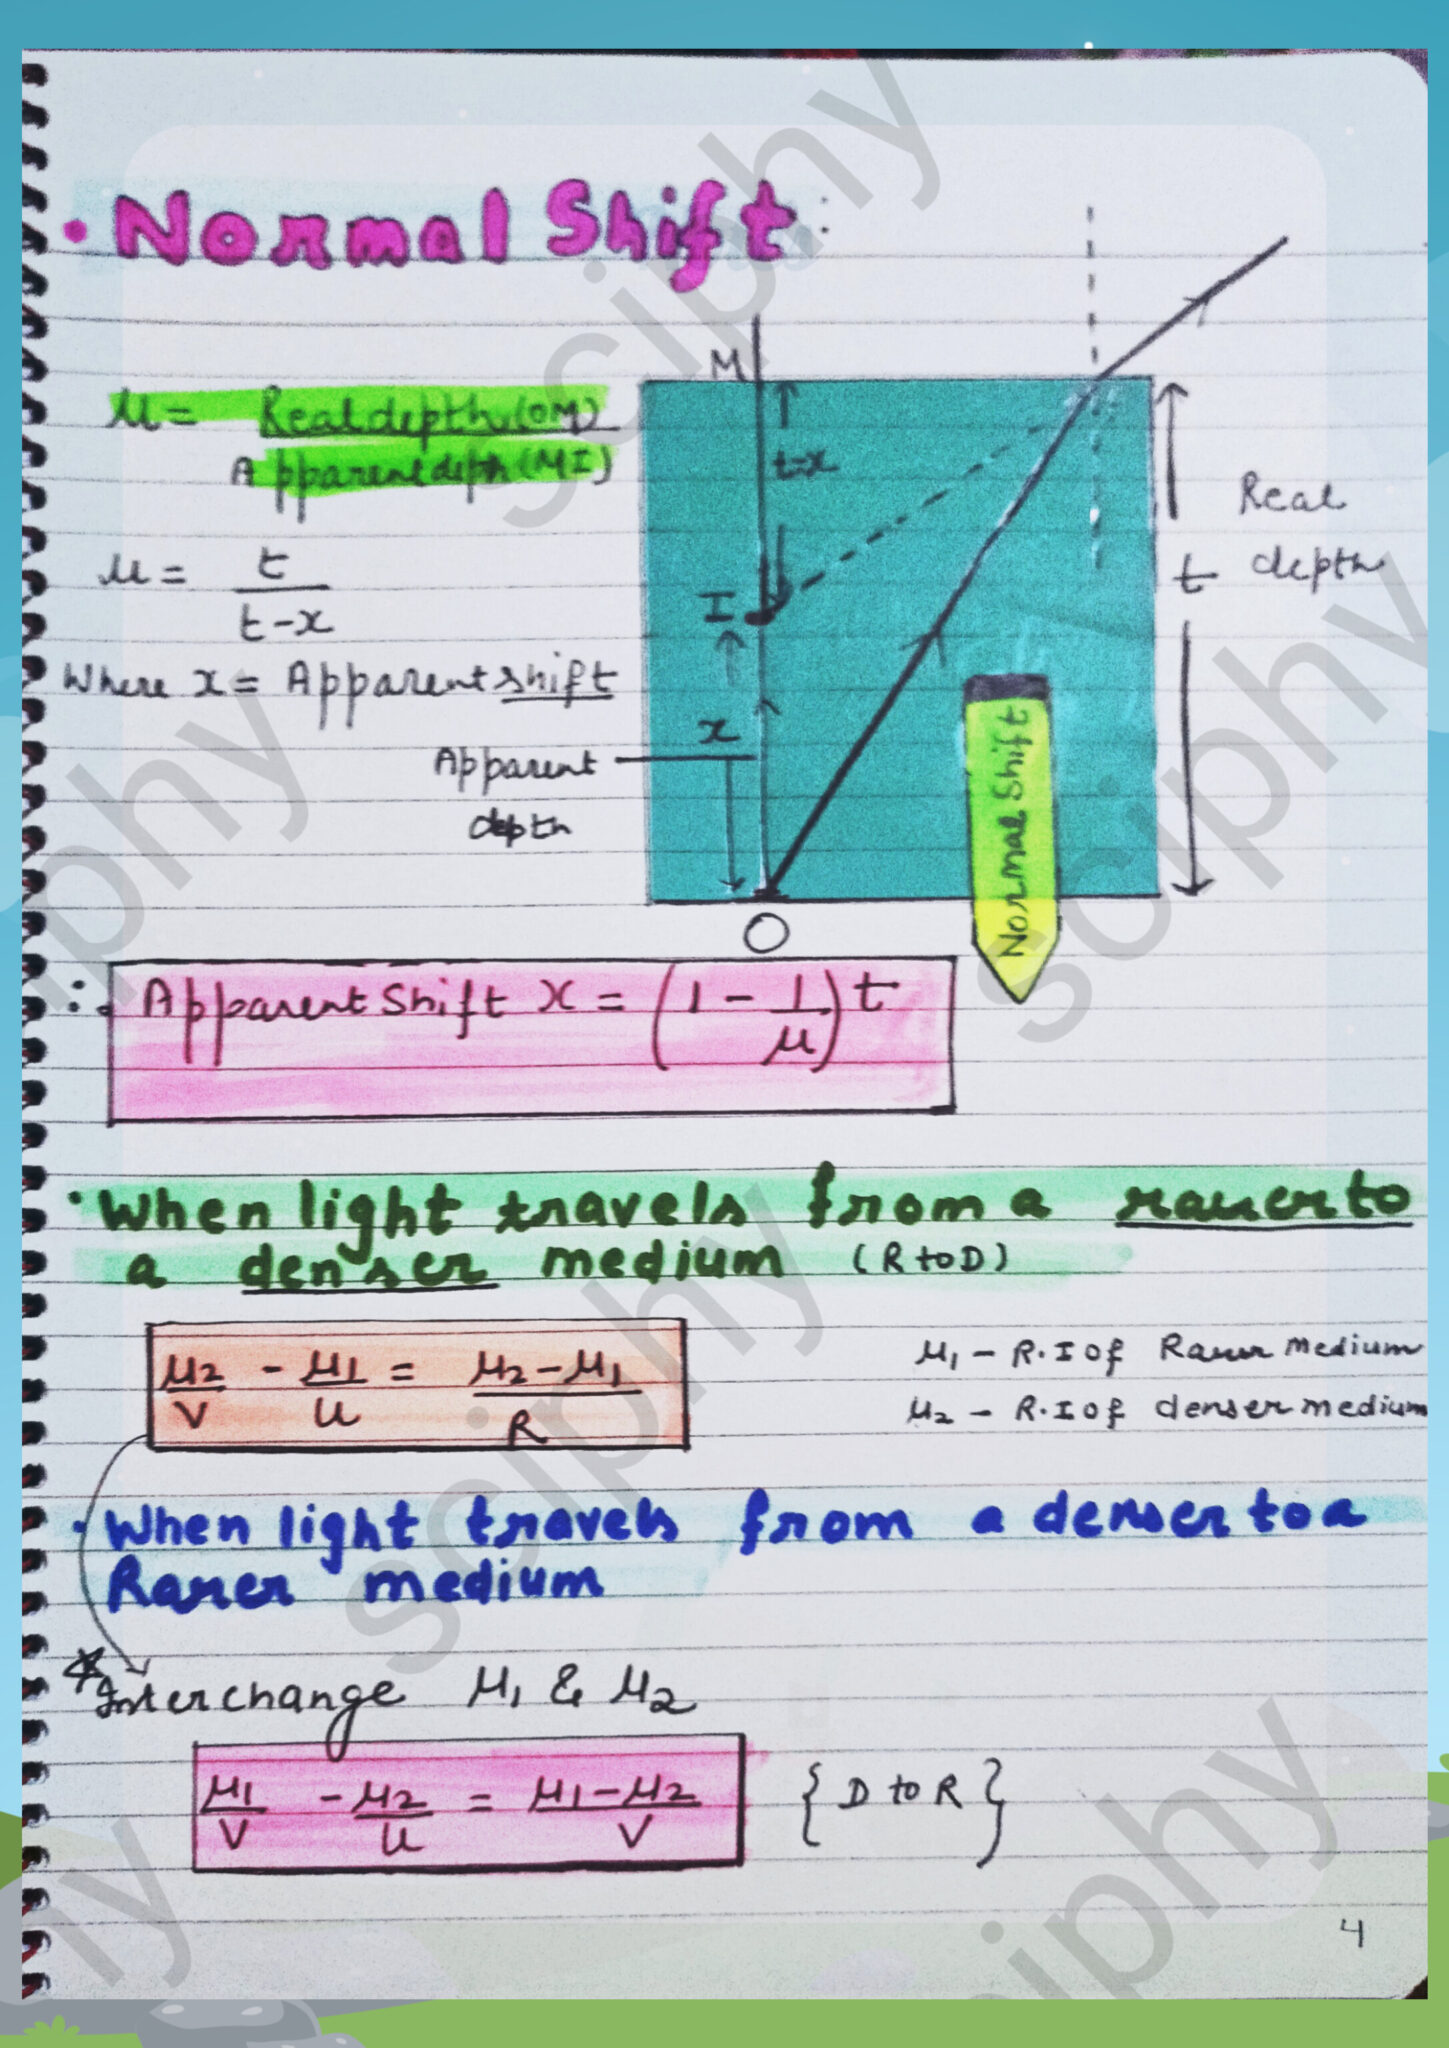 • Normal Shift :
μ = Real depth (OM) / Apparent depth (MI)
μ = t / t-x
Where x = Apparent shift
M
t-x
I
x
Apparent
depth
O
Real
depth
t
Normal Shift
∴ Apparent Shift x = (1 - 1/μ) t
• When light travels from a rarer to
a denser medium (R to D)
μ2/V - μ1/U = μ2-μ1/R
μ1 - R.I of Rarer medium
μ2 - R.I of denser medium
• When light travels from a denser to a
Rarer medium
* Interchange μ1 & μ2
μ1/V - μ2/U = μ1-μ2/V
{ D to R }
4
sciphy
sciphy
sciphy
sciphy
sciphy
sciphy